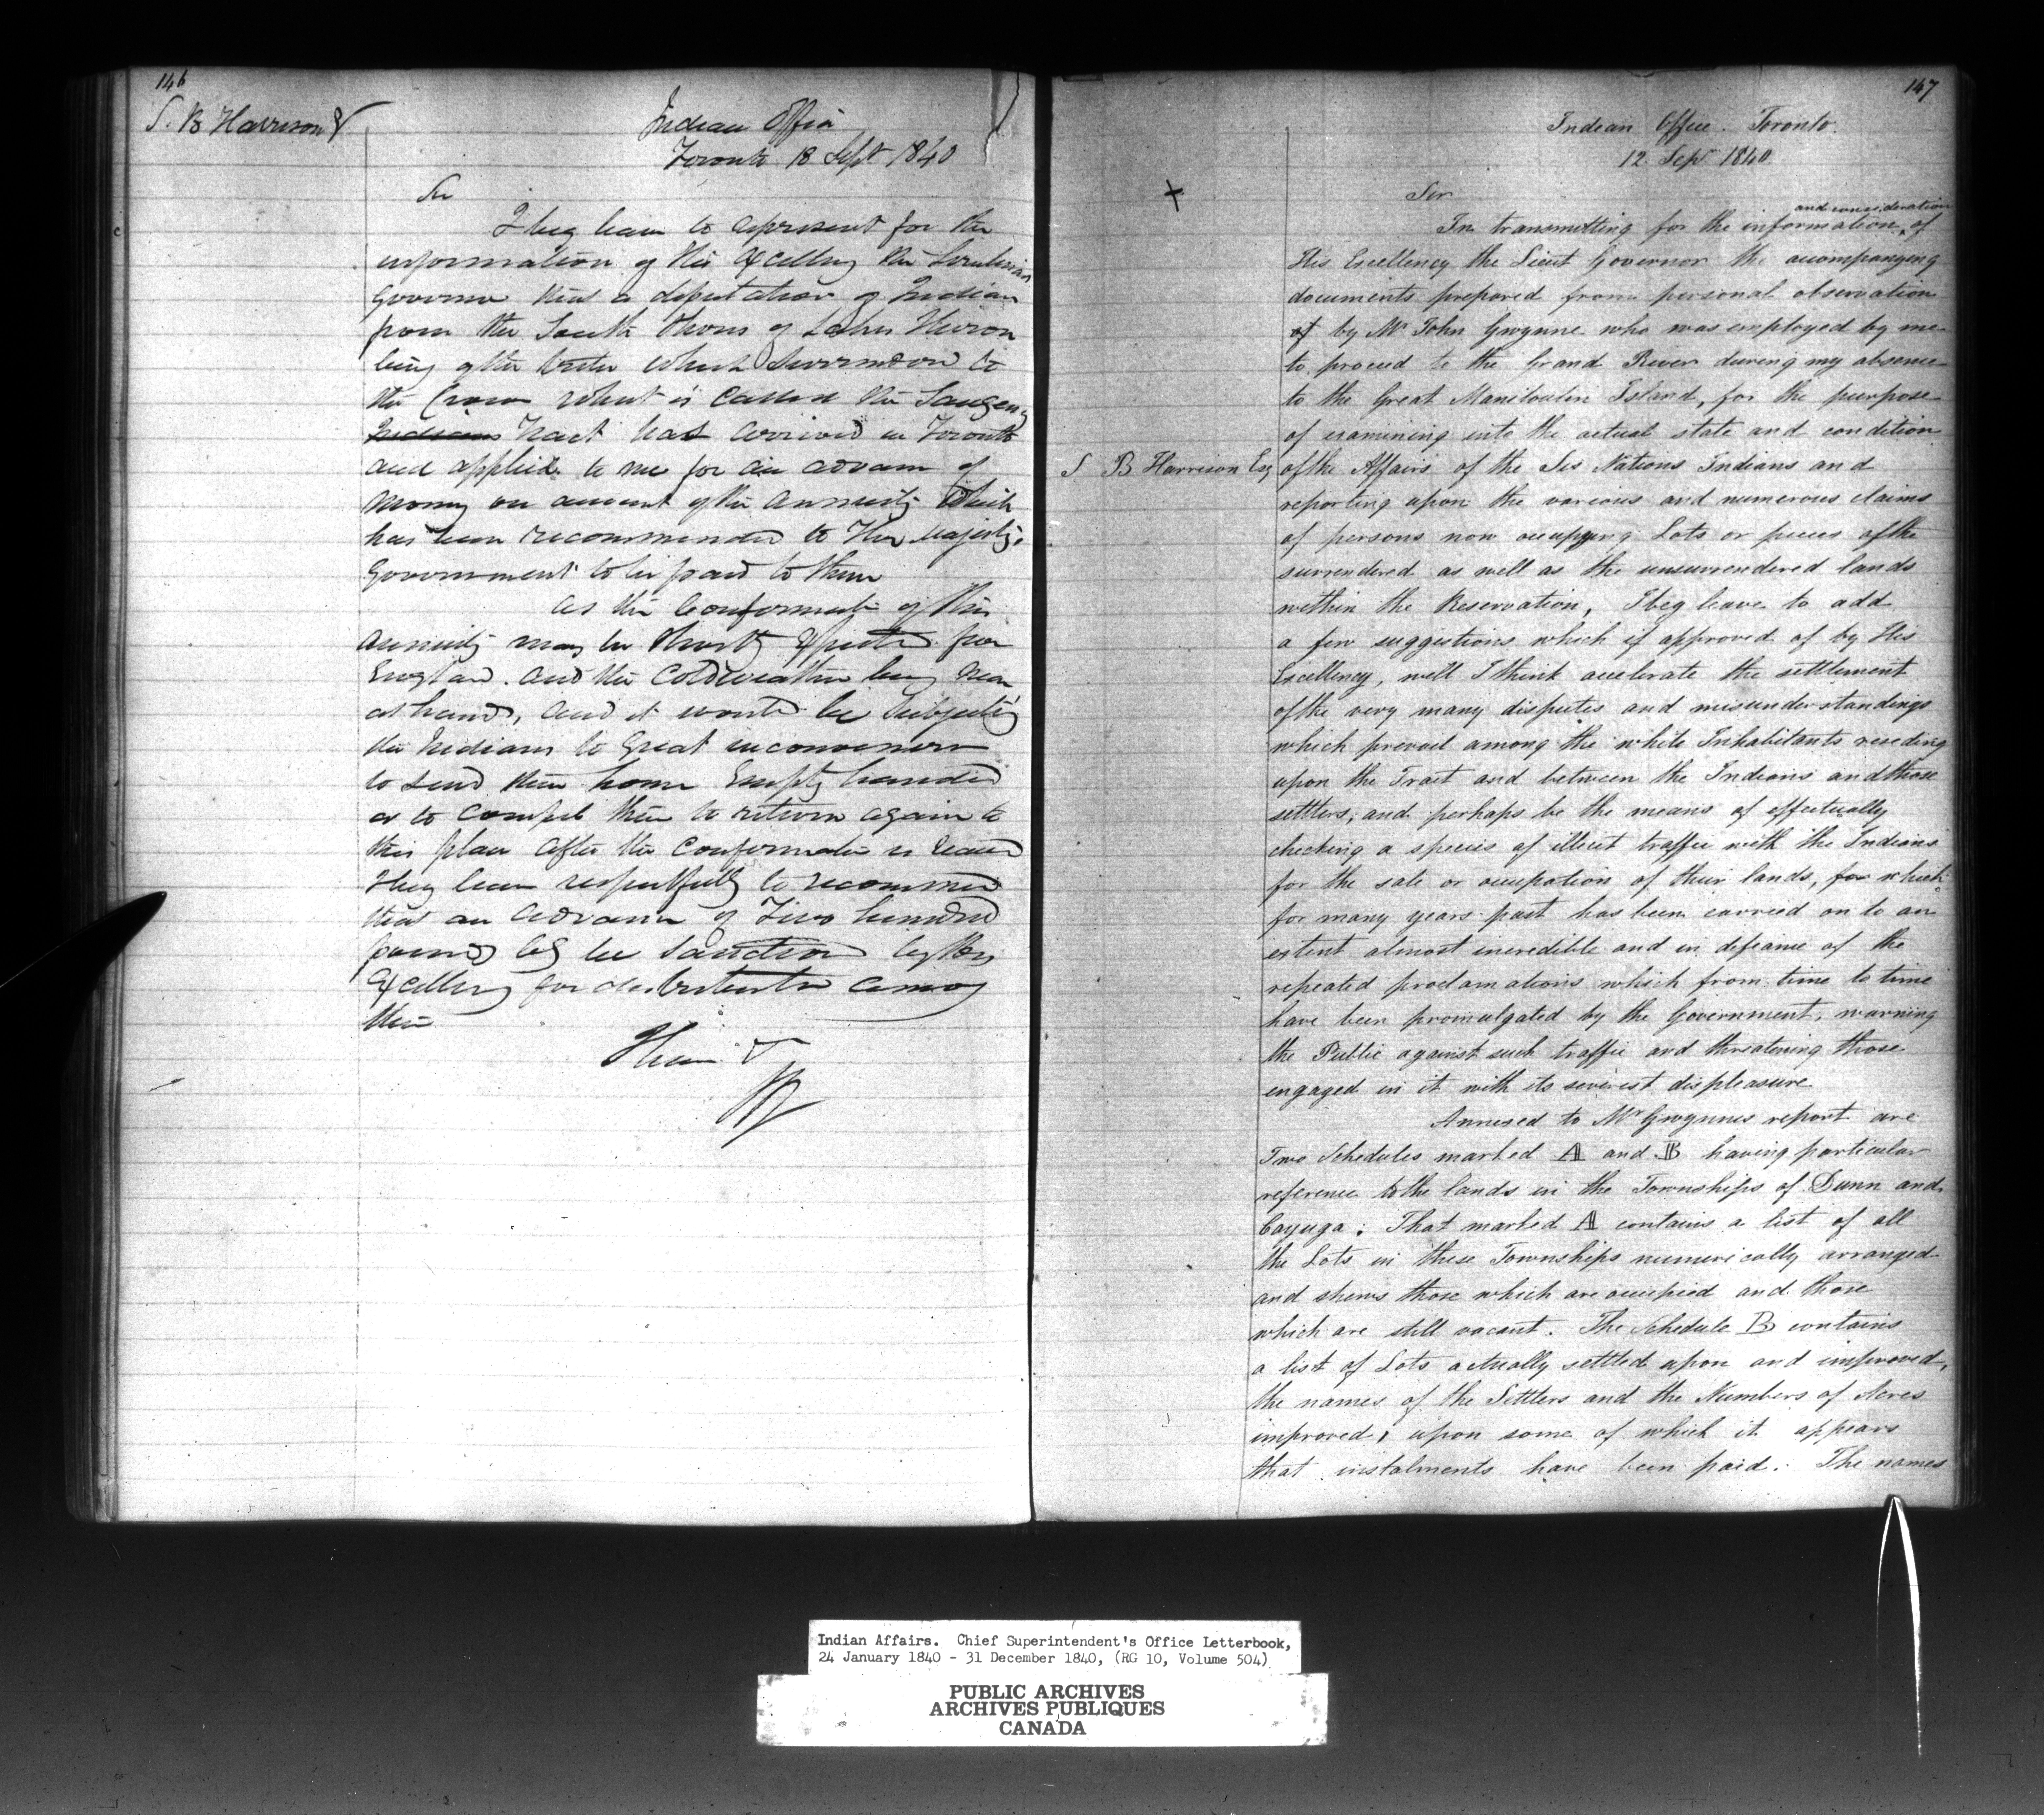 146
S. B Harrison &
Indian Office
Toronto 18 Sept 1840
Sir
I beg leave to represent for the
information of His Excellency the Lieutenant
Governor that a deputation of Indians
from the South Shores of Lake Huron
being of the tribe which surrendered to
the Crown what is called the Saugeeng
Indians Tract has arrived in Toronto
and applied to me for an advance of
money on account of the annuity which
has been recommended to Her Majesty's
Government to be paid to them
As the Confirmation of this
annuity may be shortly expected from
England. and the Coldweather being near
at hand, and it would be subjecting
the Indians to great inconvenience
to send them home Empty handed
or to compel them to return again to
this place after the Confirmation is
I beg leave respectfully to recommend
that an advance of Two hundred
pounds be sanctioned by His
Excellency for distribution among
them
I have &
147
Indian Office. Toronto.
12 Sepr 1840
Sir
In transmitting for the information and consideration of
His Excellency the Lieut Governor the accompanying
documents prepared from personal observation
of by Mr John Gwynne who was employed by me
to proceed to the Grand River during my absence
to the Great Manitoulin Island, for the purpose
of examining into the actual state and condition
S B Harrison Esq
of the Affairs of the Six Nations Indians and
reporting upon the various and numerous claims
of persons now occupying Lots or pieces of the
surrendered as well as the unsurrendered lands
within the Reservation, I beg leave to add
a few suggestions which if approved of by His
Excellency, will I think accelerate the settlement
of the very many disputes and misunderstandings
which prevail among the white Inhabitants residing
upon the Tract and between the Indians and those
settlers, and perhaps be the means of effectually
checking a species of illicit traffic with the Indians
for the sale or occupation of their lands, for which
for many years past has been carried on to an
extent almost incredible and in defiance of the
repeated proclamations which from time to time
have been promulgated by the Government, warning
the Public against such traffic and threatening those
engaged in it with its severest displeasure
Annexed to Mr Gwynnes report are
Two Schedules marked A and B having particular
reference to the lands in the Townships of Dunn and
Cayuga: That marked A contains a list of all
the Lots in these Townships numerically arranged
and shews those which are occupied and those
which are still vacant. The Schedule B contains
a list of Lots actually settled upon and improved,
the names of the Settlers and the Numbers of Acres
improved, upon some of which it appears
that instalments have been paid. The names
Indian Affairs. Chief Superintendent's Office Letterbook,
24 January 1840 - 31 December 1840, (RG 10, Volume 504)
PUBLIC ARCHIVES
ARCHIVES PUBLIQUES
CANADA